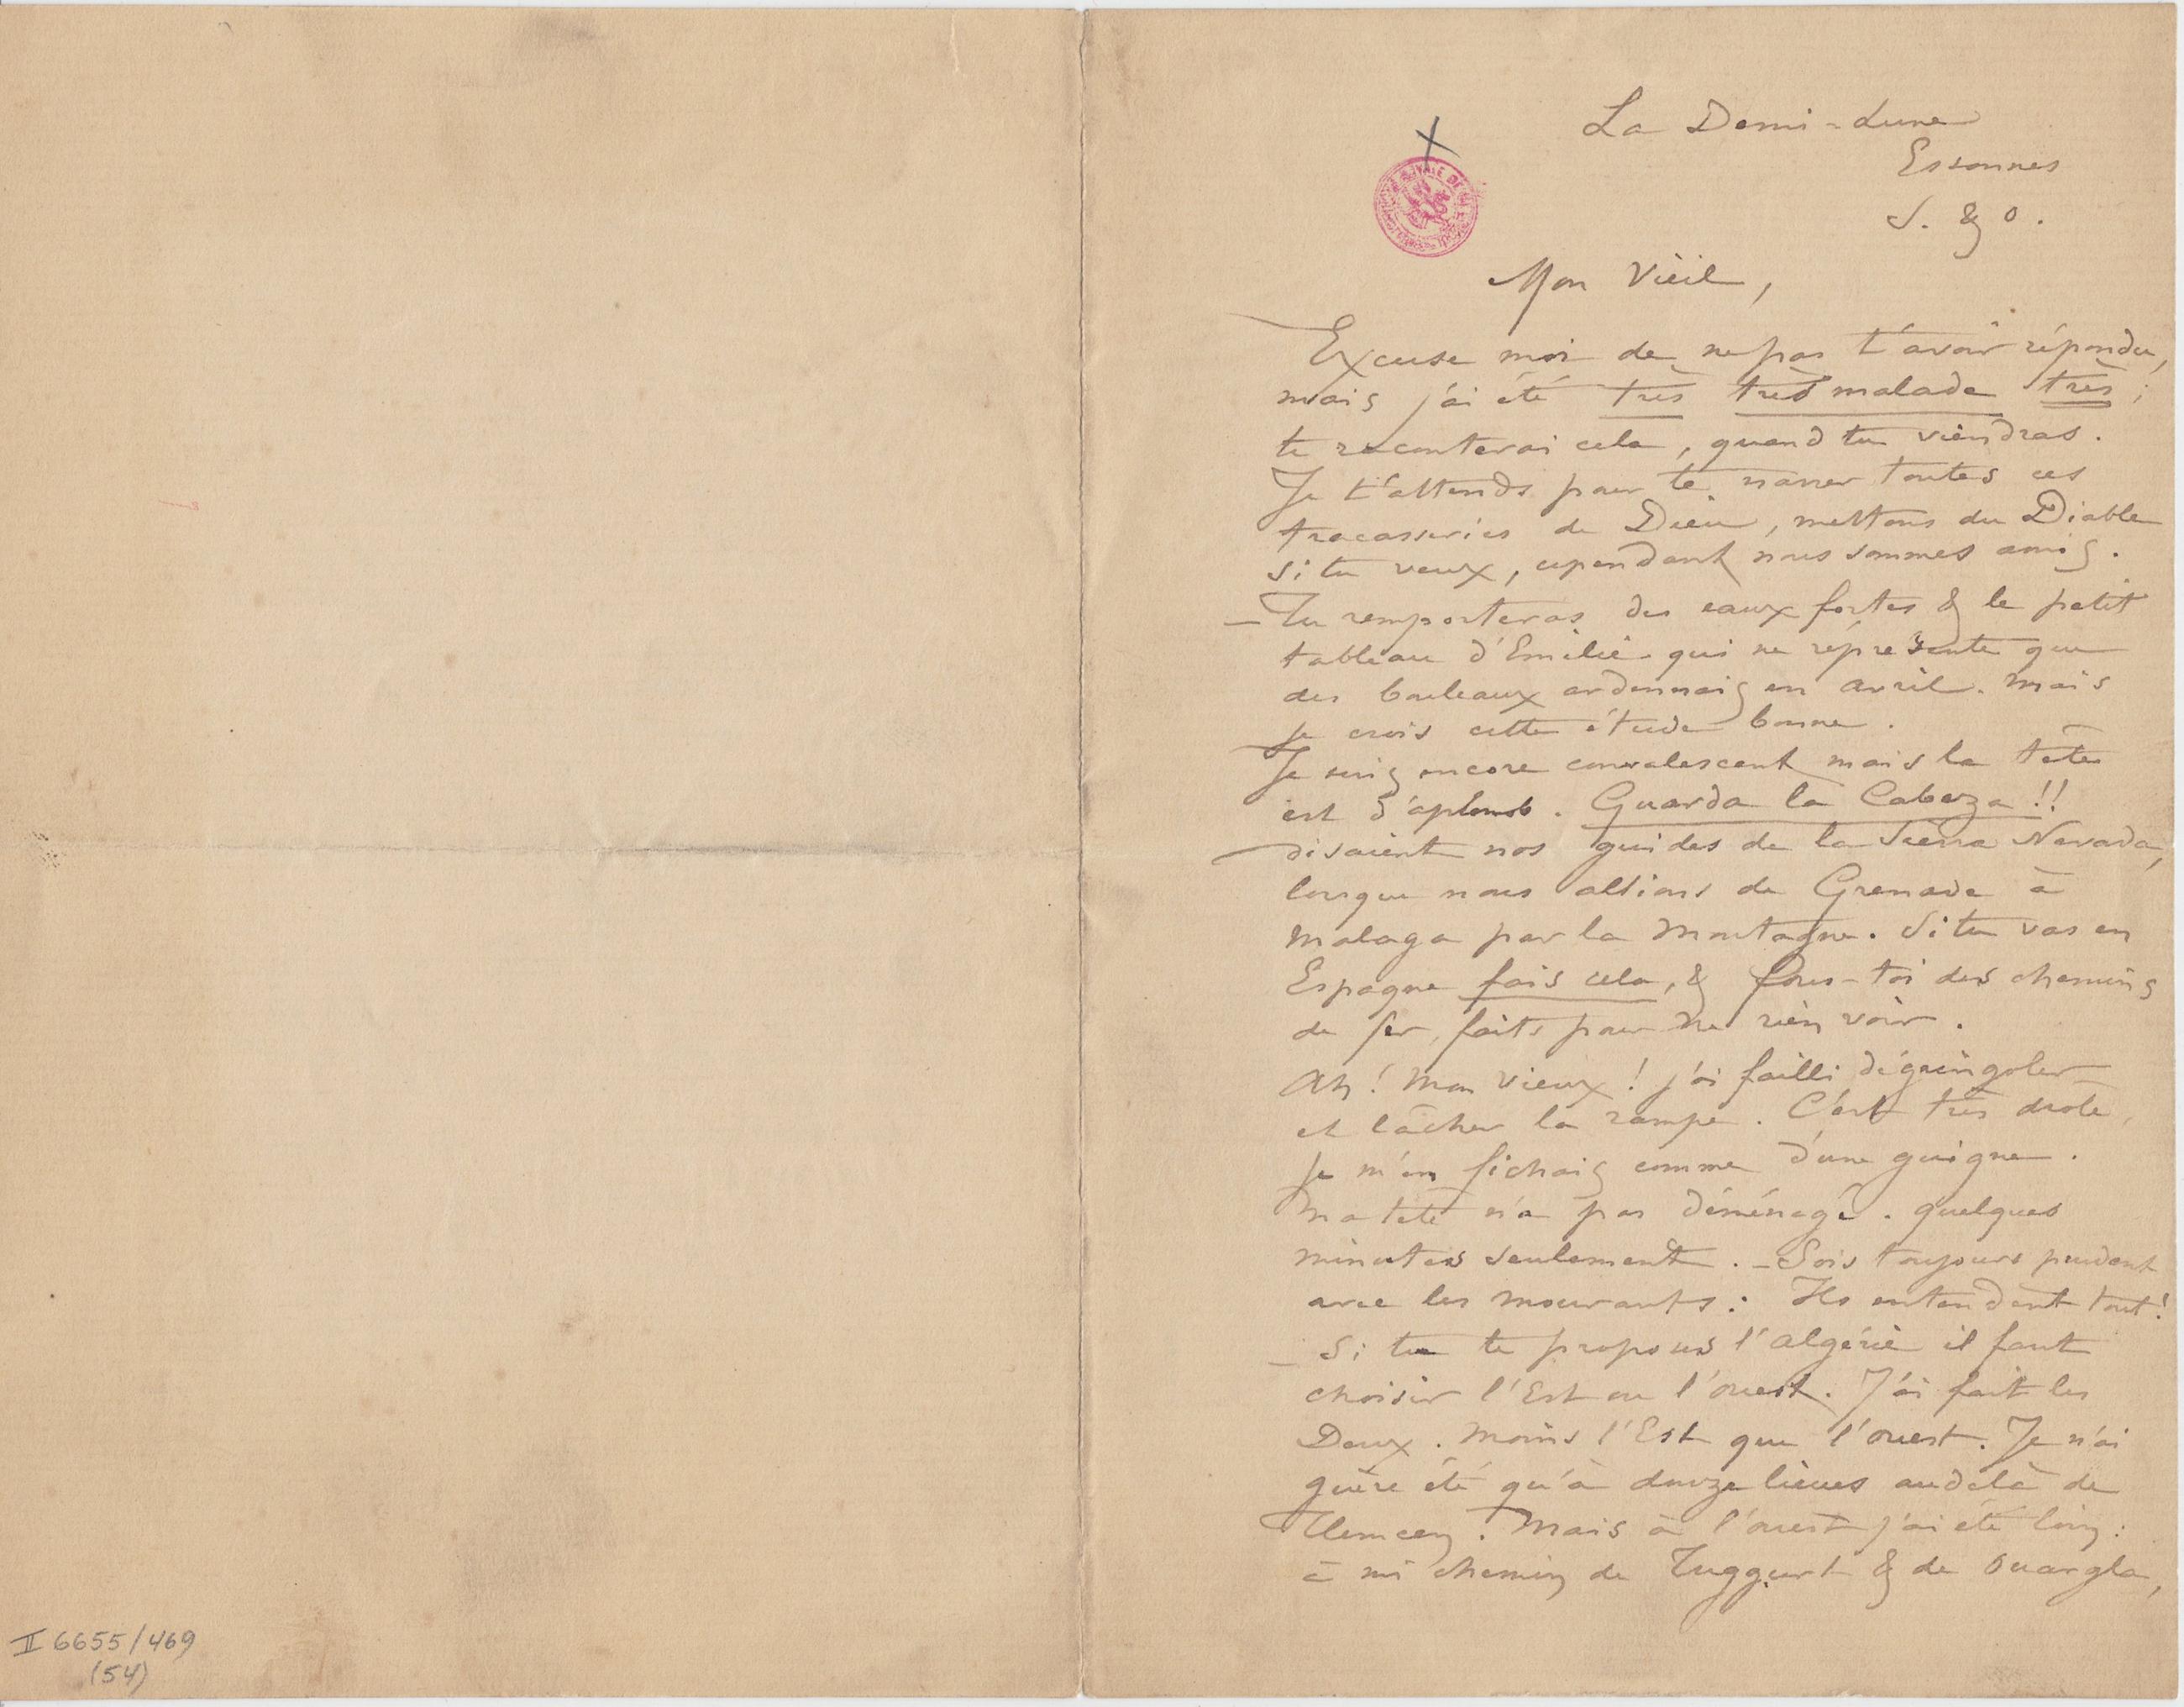 La Demi-Lune
Essonnes
S. & O.
Mon Vieil,
Excuse moi de ne pas t'avoir répondu,
mais j'ai été très très malade très ;
te raconterai cela, quand tu viendras.
Je t'attends pour te narrer toutes ces
tracasseries de Dieu, mettons du Diable
si tu veux, cependant nous sommes amis.
— Tu remporteras des eaux fortes & le petit
tableau d'Emélie qui ne représente que
des bouleaux ardennais en avril. Mais
je crois cette étude bonne.
Je suis encore convalescent mais la tête
est d'aplomb. Guarda la Cabeza !!
disaient nos guides de la Sierra Nevada,
lorsque nous allions de Grenade à
Malaga par la montagne. Si tu vas en
Espagne fais cela, & fous-toi des chemins
de fer, faits pour ne rien voir.
Ah ! Mon vieux ! j'ai failli dégringoler
et lâcher la rampe. C'est très drole,
je m'en fichais comme d'une guigne.
Ma tête n'a pas déménagé. quelques
minutes seulement. — Sois toujours prudent
avec les mourants : Ils entendent tout !
— Si tu te proposes l'algérie il faut
choisir l'Est ou l'ouest. J'ai fait les
Deux. Moins l'Est que l'ouest. Je n'ai
guère été qu'à douze lieues audelà de
Tlemcen. Mais à l'ouest j'ai été loin :
à mi chemin de Tuggurt & de Ouargla,
II 6655/469
(54)